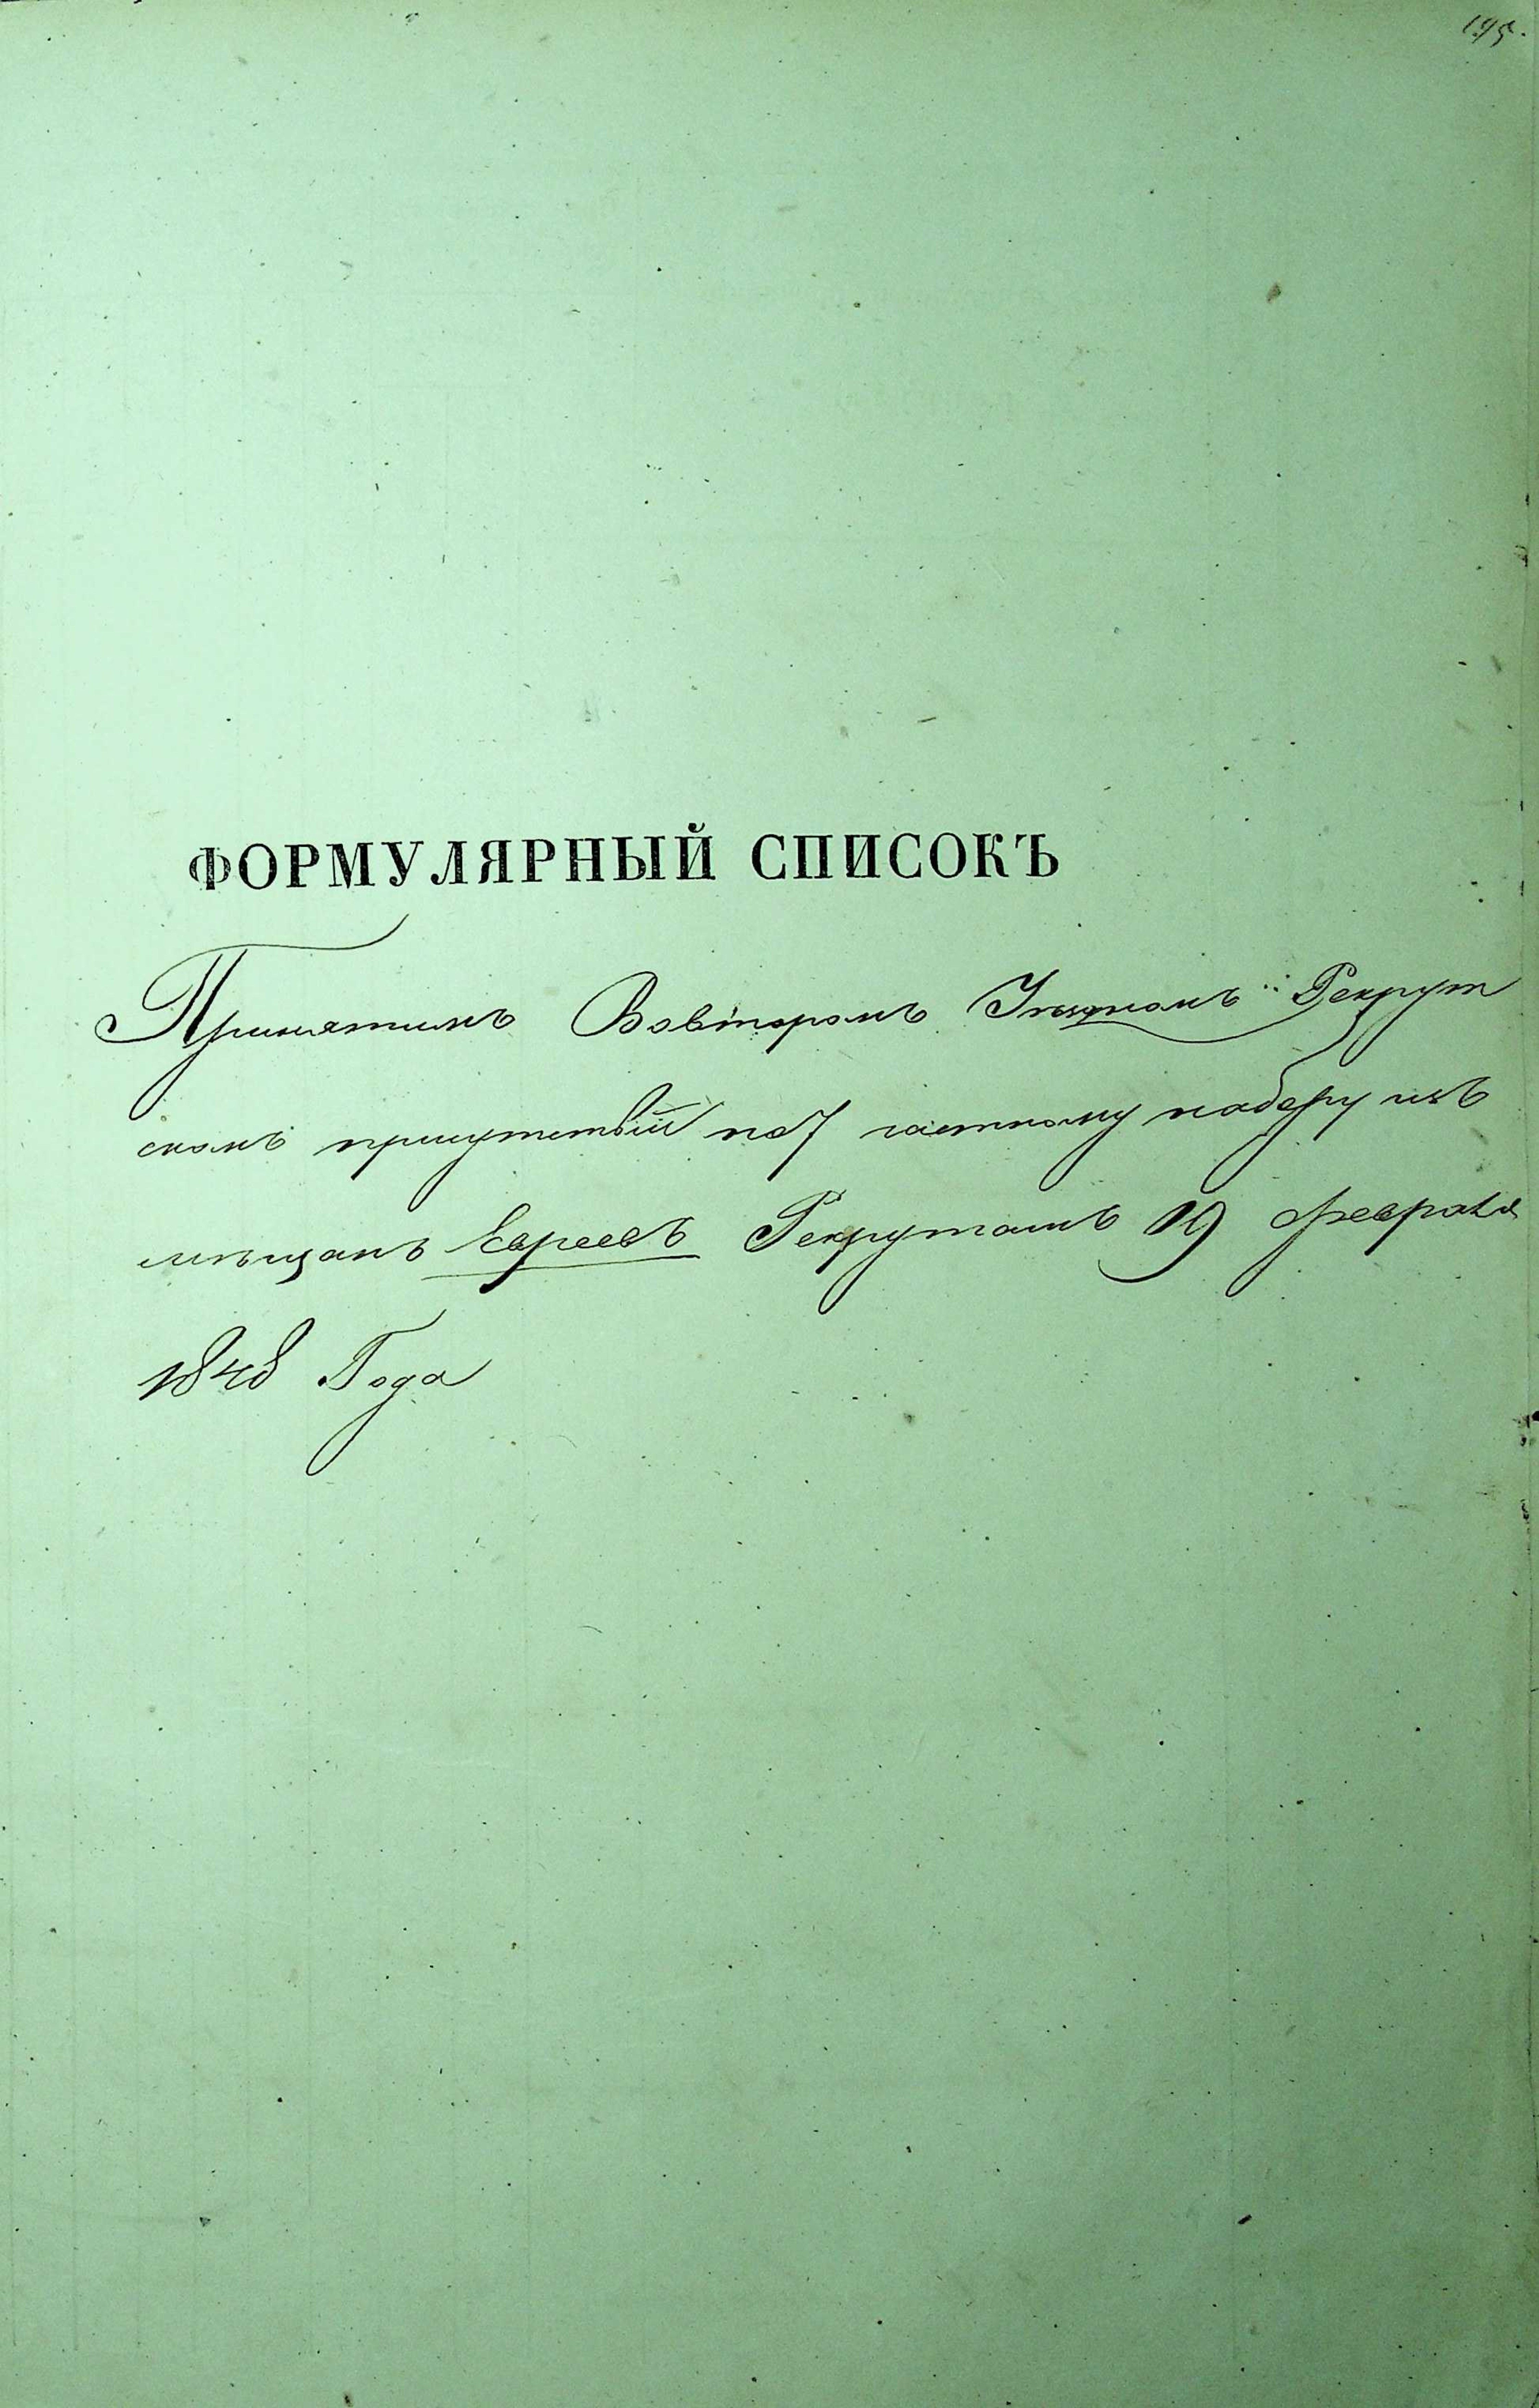 195.
ФОРМУЛЯРНЫЙ СПИСОКЪ
Принятымъ Вовторомъ Уѣздномъ Рекрут
скомъ присутствіи по 7 частному набору изъ
мѣщанъ Евреевъ Рекрутамъ 19 февраля
1848 Года